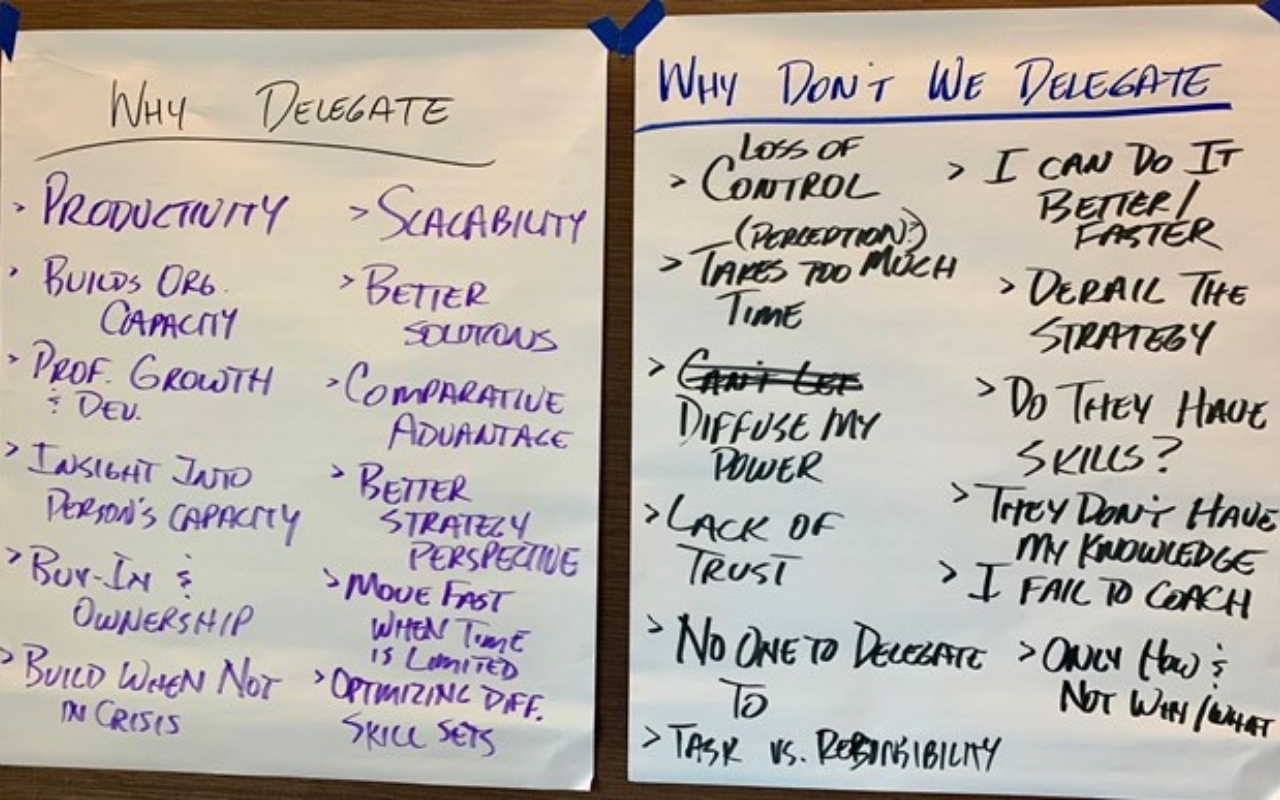 WHY DELEGATE
> PRODUCTIVITY
> BUILDS ORG.
CAPACITY
> PROF. GROWTH
& DEV.
> INSIGHT INTO
PERSON'S CAPACITY
> BUY-IN &
OWNERSHIP
> BUILD WHEN NOT
IN CRISIS
> SCALABILITY
> BETTER
SOLUTIONS
> COMPARATIVE
ADVANTAGE
> BETTER
STRATEGY
PERSPECTIVE
> MOVE FAST
WHEN TIME
IS LIMITED
> OPTIMIZING DIFF.
SKILL SETS
WHY DON'T WE DELEGATE
LOSS OF
> CONTROL
(PERCEPTION?)
> TAKES TOO MUCH
TIME
> CAN'T LET
DIFFUSE MY
POWER
> LACK OF
TRUST
> NO ONE TO DELEGATE
TO
> TASK VS. RESPONSIBILITY
> I CAN DO IT
BETTER/
FASTER
> DERAIL THE
STRATEGY
> DO THEY HAVE
SKILLS?
> THEY DON'T HAVE
MY KNOWLEDGE
> I FAIL TO COACH
> ONLY HOW &
NOT WHY/WHAT